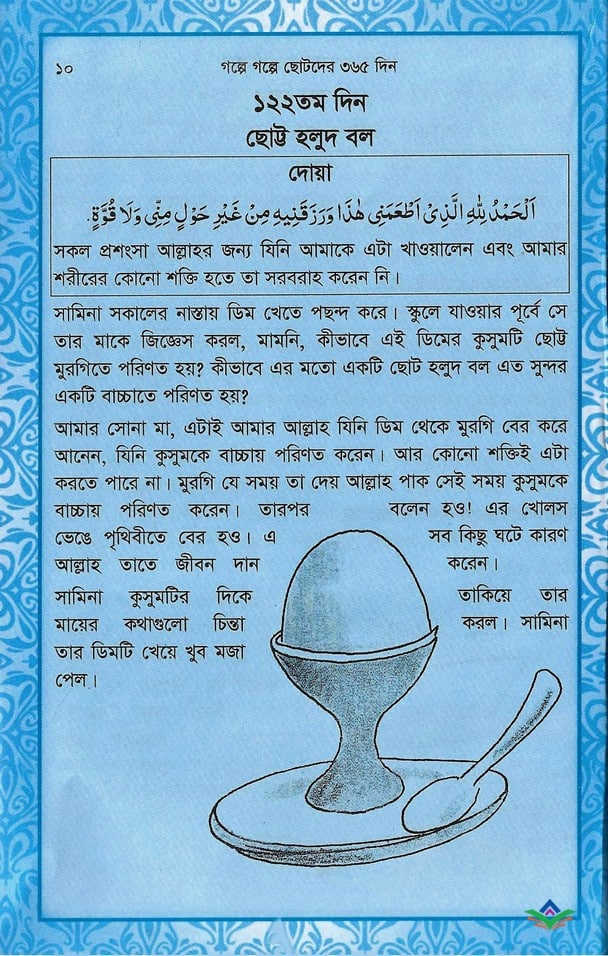 ১০
গল্পে গল্পে ছোটদের ৩৬৫ দিন
১২২তম দিন
ছোট্ট হলুদ বল
দোয়া
اَلْحَمْدُ لِلّٰهِ الَّذِىْ اَطْعَمَنِى هٰذَا وَرَزَقَنِيهِ مِنْ غَيْرِ حَوْلٍ مِنِّى وَلَا قُوَّةٍ.
সকল প্রশংসা আল্লাহর জন্য যিনি আমাকে এটা খাওয়ালেন এবং আমার
শরীরের কোনো শক্তি হতে তা সরবরাহ করেন নি।
সামিনা সকালের নাস্তায় ডিম খেতে পছন্দ করে। স্কুলে যাওয়ার পূর্বে সে
তার মাকে জিজ্ঞেস করল, মামনি, কীভাবে এই ডিমের কুসুমটি ছোট্ট
মুরগিতে পরিণত হয়? কীভাবে এর মতো একটি ছোট হলুদ বল এত সুন্দর
একটি বাচ্চাতে পরিণত হয়?
আমার সোনা মা, এটাই আমার আল্লাহ যিনি ডিম থেকে মুরগি বের করে
আনেন, যিনি কুসুমকে বাচ্চায় পরিণত করেন। আর কোনো শক্তিই এটা
করতে পারে না। মুরগি যে সময় তা দেয় আল্লাহ পাক সেই সময় কুসুমকে
বাচ্চায় পরিণত করেন। তারপর বলেন হও! এর খোলস
ভেঙে পৃথিবীতে বের হও। এ সব কিছু ঘটে কারণ
আল্লাহ তাতে জীবন দান করেন।
সামিনা কুসুমটির দিকে তাকিয়ে তার
মায়ের কথাগুলো চিন্তা করল। সামিনা
তার ডিমটি খেয়ে খুব মজা
পেল।